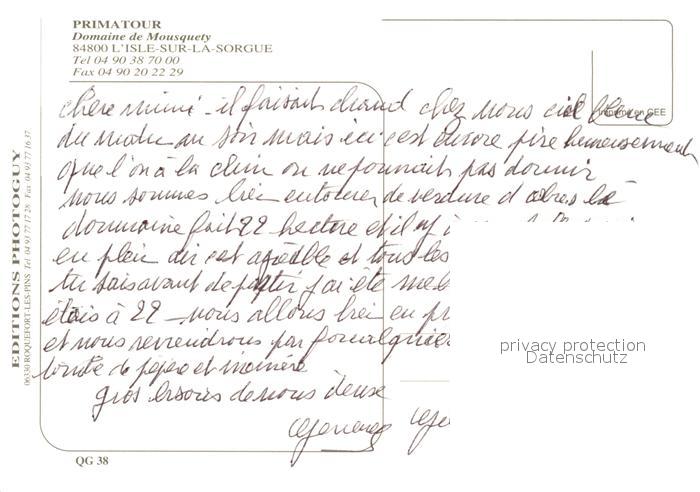 PRIMATOUR
Domaine de Mousquety
84800 L'ISLE-SUR-LA-SORGUE
Tel 04 90 38 70 00
Fax 04 90 20 22 29
CEE
chere mimi - il faisait chaud chez nous ciel
du matin au soir mais ici c'est encore pire heureusement
que l'on à la clim on ne pourrait pas dormir
nous sommes bien entourer de verdure d'abres le
dommaine fait 22 hectare et il y
en plein air c'est agréable et tous les
tu sais avant de partir j'ai été
étais à 22 - nous allons bien
et nous reviendrons par
tombe de pépère et mémère
gros bisous de nous deuse
QG 38
EDITIONS PHOTOGUY
06330 ROQUEFORT-LES-PINS Tel 04 93 77 17 28 Fax 04 93 77 16 37
privacy protection
Datenschutz